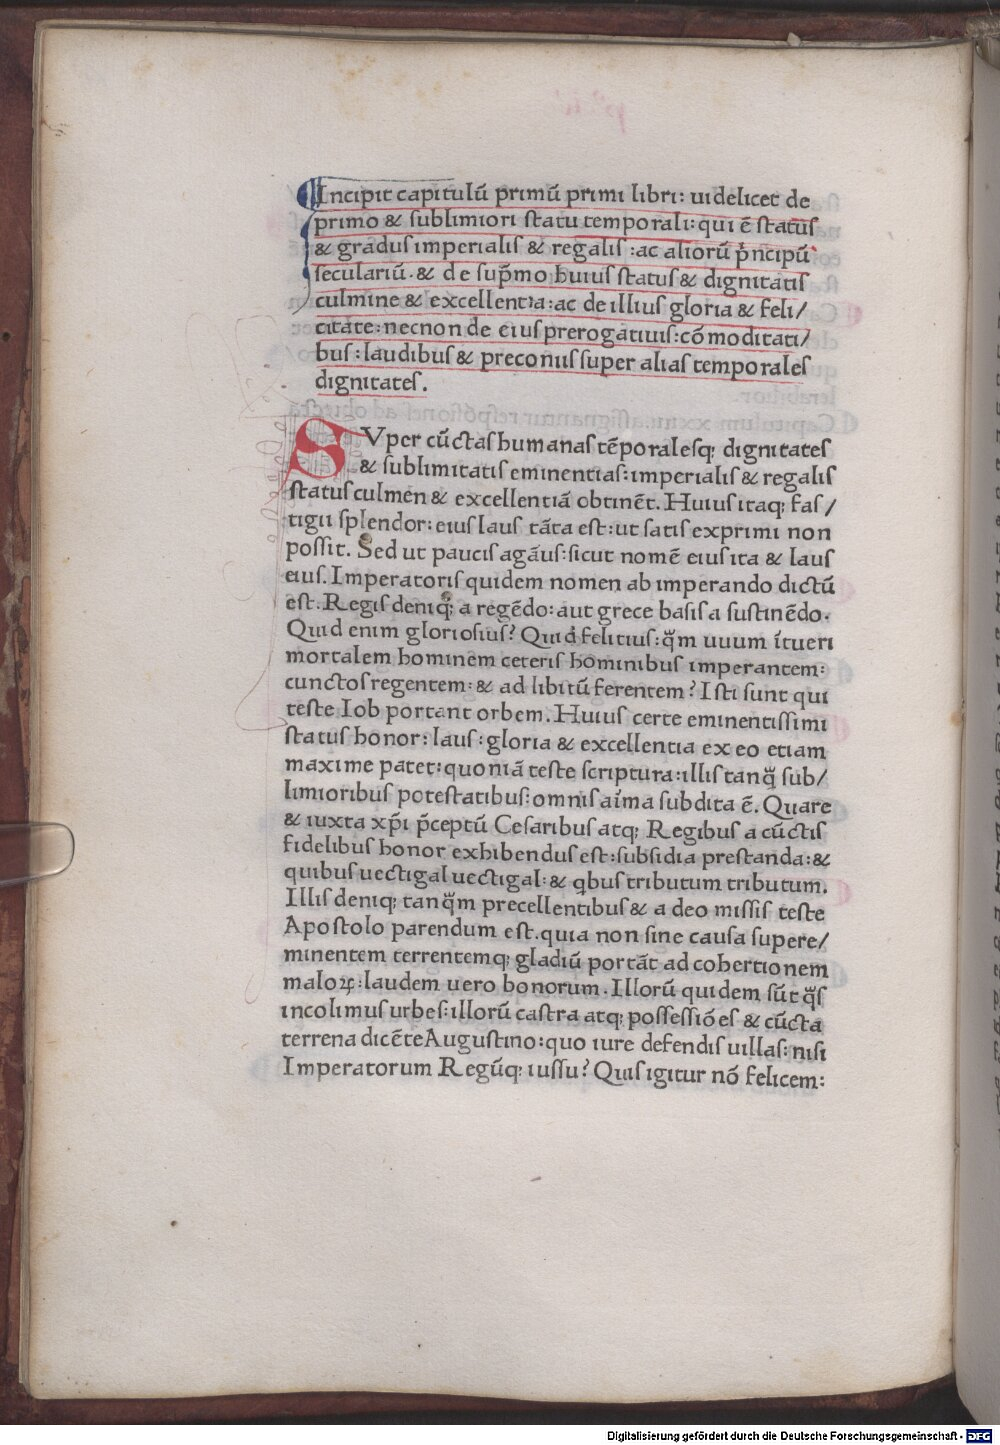 Incipit capitulū primū primi libri: uidelicet de
primo & ſublimiori ſtatu temporali: qui ē ſtatus
& gradus imperialiſ & regaliſ : ac aliorū pͥncipū
ſeculariū. & de ſup̄mo huiuſ ſtatuſ & dignitatiſ
culmine & excellentia: ac de illiuſ gloria & feli/
citate: necnon de eiuſ prerogatiuiſ: cōmoditati/
buſ: laudibuſ & preconiiſ ſuper aliaſ temporaleſ
dignitateſ.
SVper cūctaſ humanaſ tēporaleſq; dignitateſ
& ſublimitatiſ eminentiaſ: imperialiſ & regaliſ
ſtatuſ culmen & excellentiā obtinēt. Huiuſ itaq; faſ/
tigii ſplendor: eiuſ lauſ tāta eſt: ut ſatiſ exprimi non
poſſit. Sed ut pauciſ agāuſ: ſicut nomē eiuſ ita & lauſ
eiuſ. Imperatoriſ quidem nomen ab imperando dictū
eſt. Regiſ deniq; a regēdo: aut grece baſiſ a ſuſtinēdo.
Quid enim glorioſiuſ? Quid feliciuſ: q̈m uuum ītueri
mortalem hominem ceteriſ hominibuſ imperantem:
cunctoſ regentem: & ad libitū ferentem? Iſti ſunt qui
teſte Iob portant orbem. Huiuſ certe eminentiſſimi
ſtatuſ honor: lauſ: gloria & excellentia ex eo etiam
maxime patet: quoniā teſte ſcriptura: illiſ tanq̈ ſub/
limioribuſ poteſtatibuſ: omniſ aīma ſubdita ē. Quare
& iuxta xp̄i p̄ceptū Ceſaribuſ atq; Regibuſ a cūctiſ
fidelibuſ honor exhibenduſ eſt: ſubſidia preſtanda: &
quibuſ uectigal uectigal: & qbuſ tributum tributum.
Illiſ deniq; tanq̈m precellentibuſ & a deo miſſiſ teſte
Apoſtolo parendum eſt. quia non ſine cauſa ſupere/
minentem terrentemq; gladiū portāt ad cohertionem
maloꝝ: laudem uero bonorum. Illorū quidem ſūt q̈ſ
incolimuſ urbeſ: illorū caſtra atq; poſſeſſiōeſ & cūcta
terrena dicēte Auguſtino: quo iure defendiſ uillaſ: niſi
Imperatorum Regūq; iuſſu? Quiſ igitur nō felicem:
Digitalisierung gefördert durch die Deutsche Forschungsgemeinschaft - DFG